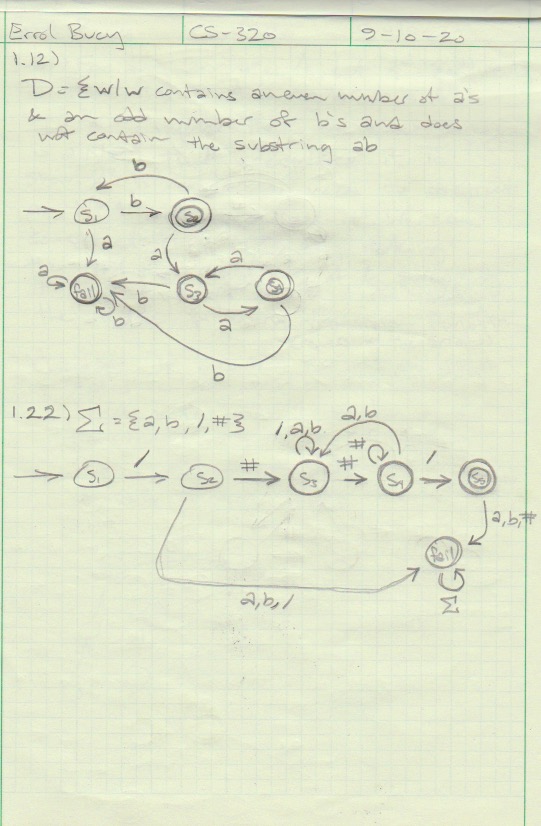 Errol Bucy CS-320 9-10-20
1.12)
D = {w/w contains an even number of a's
& an odd number of b's and does
not contain the substring ab
b
S₁ b S₂
a a a
a fail b S₃ a
b
b
1.22) Σ = {a,b,/,#}
/,a,b a,b
S₁ / S₂ # S₃ # # S₄ / S₅
a,b,#
fail
a,b,/
Σ